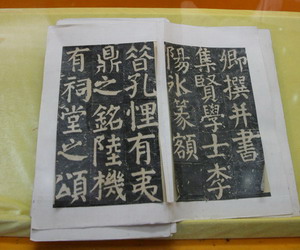 卿撰并書
集賢學士李
陽冰篆額
昔孔悝有夷
鼎之銘陸機
有祠堂之頌